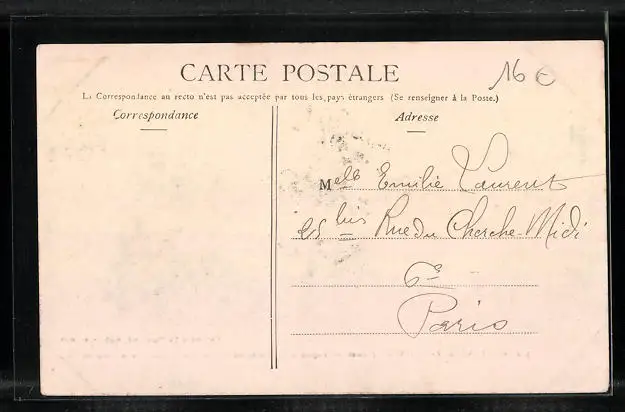 CARTE POSTALE
16 €
La Correspondance au recto n'est pas acceptée par tous les pays étrangers (Se renseigner à la Poste.)
Correspondance
Adresse
Melle Emilie Laurent
25 bis Rue du Cherche-Midi
6e
Paris